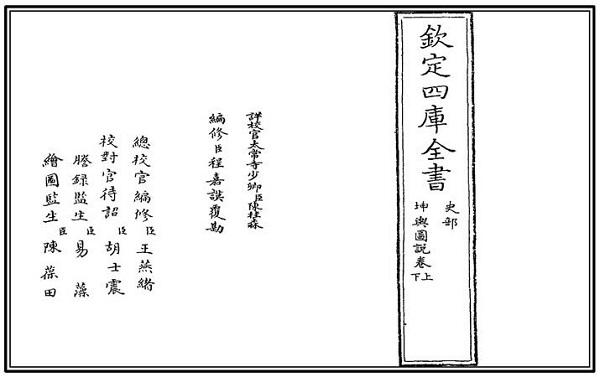 欽定四庫全書
史部
坤輿圖說卷上下
詳校官太常寺少卿臣陳桂森
編修臣程嘉謨覆勘
總校官編修臣王燕緒
校對官待詔臣胡士震
謄錄監生臣易藻
繪圖監生臣陳葆田